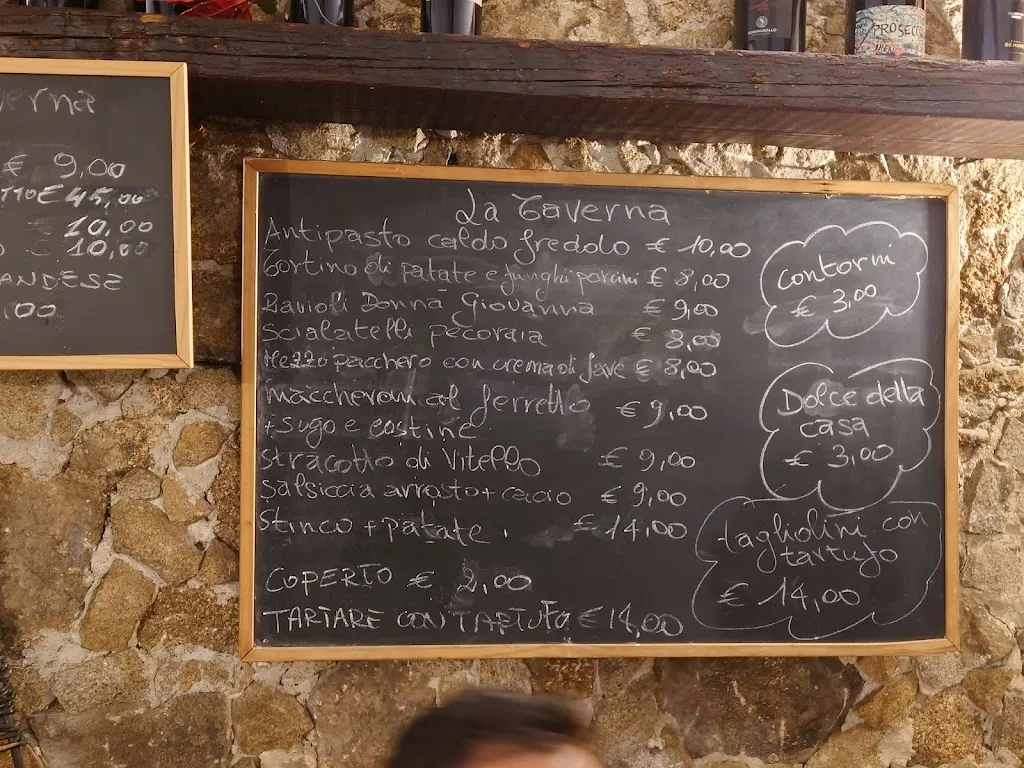 PROSECCO
verna
€ 9,00
TTO € 45,00
€ 10,00
€ 10,00
ANDESE
,00
La Taverna
Antipasto caldo freddo € 10,00
Tortino di patate e funghi porcini € 8,00
Ravioli Donna Giovanna € 9,00
Scialatelli pecoraia € 8,00
Mezzo pacchero con crema di fave € 8,00
Maccheroni al ferretto € 9,00
+ sugo e costine
Stracotto di Vitello € 9,00
Salsiccia arrosto + cacio € 9,00
Stinco + patate . € 14,00
COPERTO € 2,00
TARTARE CON TARTUFO € 14,00
Contorni
€ 3,00
Dolce della
casa
€ 3,00
tagliolini con
tartufo
€ 14,00